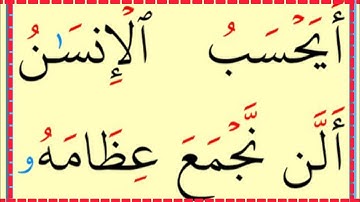 أَيَحْسَبُ ٱلْإِنسَـٰنُ
أَلَّن نَّجْمَعَ عِظَامَهُۥ